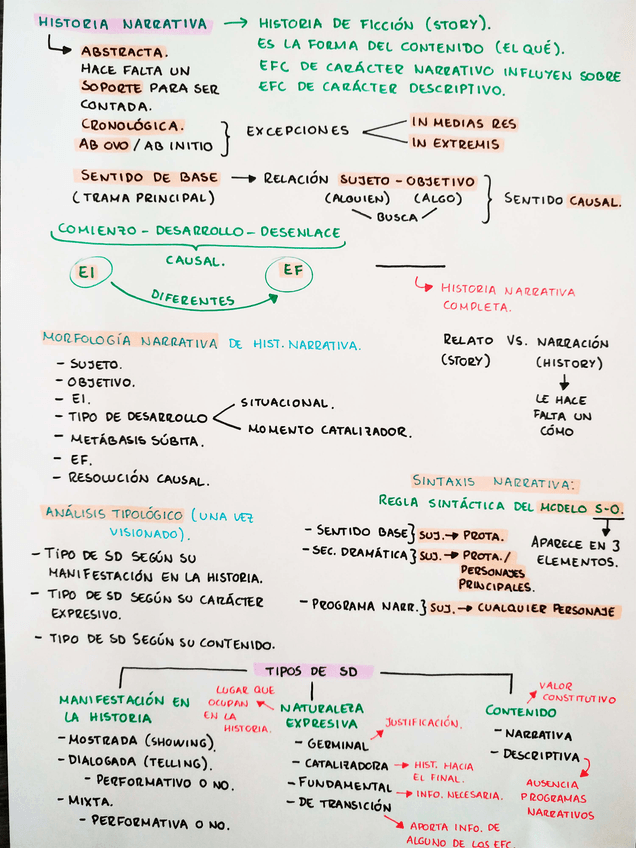 HISTORIA NARRATIVA → HISTORIA DE FICCIÓN (STORY).
ES LA FORMA DEL CONTENIDO (EL QUÉ).
EFC DE CARÁCTER NARRATIVO INFLUYEN SOBRE
EFC DE CARÁCTER DESCRIPTIVO.
ABSTRACTA.
HACE FALTA UN
SOPORTE PARA SER
CONTADA.
CRONOLÓGICA.
AB OVO / AB INITIO
EXCEPCIONES
IN MEDIAS RES
IN EXTREMIS
SENTIDO DE BASE → RELACIÓN SUJETO - OBJETIVO
(TRAMA PRINCIPAL)
(ALGUIEN) (ALGO)
BUSCA
SENTIDO CAUSAL.
COMIENZO - DESARROLLO - DESENLACE
CAUSAL.
EI
EF
DIFERENTES
HISTORIA NARRATIVA
COMPLETA.
MORFOLOGÍA NARRATIVA DE HIST. NARRATIVA.
- SUJETO.
- OBJETIVO.
- EI.
- TIPO DE DESARROLLO
SITUACIONAL.
MOMENTO CATALIZADOR.
- METÁBASIS SÚBITA.
- EF.
- RESOLUCIÓN CAUSAL.
RELATO VS. NARRACIÓN
(STORY) (HISTORY)
LE HACE
FALTA UN
CÓMO
SINTAXIS NARRATIVA:
REGLA SINTÁCTICA DEL MODELO S-O.
APARECE EN 3
ELEMENTOS.
- SENTIDO BASE } SUJ. → PROTA.
- SEC. DRAMÁTICA } SUJ. → PROTA. /
PERSONAJES
PRINCIPALES.
- PROGRAMA NARR. } SUJ. → CUALQUIER PERSONAJE
ANÁLISIS TIPOLÓGICO (UNA VEZ
VISIONADO).
- TIPO DE SD SEGÚN SU
MANIFESTACIÓN EN LA HISTORIA.
- TIPO DE SD SEGÚN SU CARÁCTER
EXPRESIVO.
- TIPO DE SD SEGÚN SU CONTENIDO.
TIPOS DE SD
MANIFESTACIÓN EN
LA HISTORIA
- MOSTRADA (SHOWING).
- DIALOGADA (TELLING).
- PERFORMATIVO O NO.
- MIXTA.
- PERFORMATIVA O NO.
LUGAR QUE
OCUPAN
EN LA
HISTORIA.
NATURALEZA
EXPRESIVA
- GERMINAL
JUSTIFICACIÓN.
- CATALIZADORA → HIST. HACIA
EL FINAL.
- FUNDAMENTAL → INFO. NECESARIA.
- DE TRANSICIÓN
APORTA INFO. DE
ALGUNO DE LOS EFC.
CONTENIDO
VALOR
CONSTITUTIVO
- NARRATIVA
- DESCRIPTIVA
AUSENCIA
PROGRAMAS
NARRATIVOS